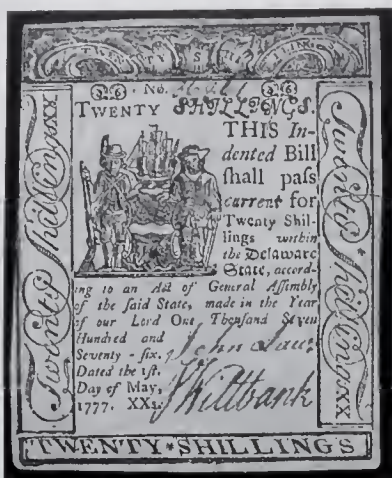 TWENTY SHILLINGS
No.
TWENTY SHILLINGS.
THIS In-
dented Bill
ſhall paſs
current for
Twenty Shil-
lings within
the Delaware
State, accord-
ing to an Act of General Aſſembly
of the ſaid State, made in the Year
of our Lord One Thouſand Seven
Hundred and
Seventy - ſix.
Dated the 1ſt.
Day of May,
1777. XXs.
John
J Wiltbank
Twenty Shillings XX
Twenty Shillings XX
TWENTY*SHILLINGS